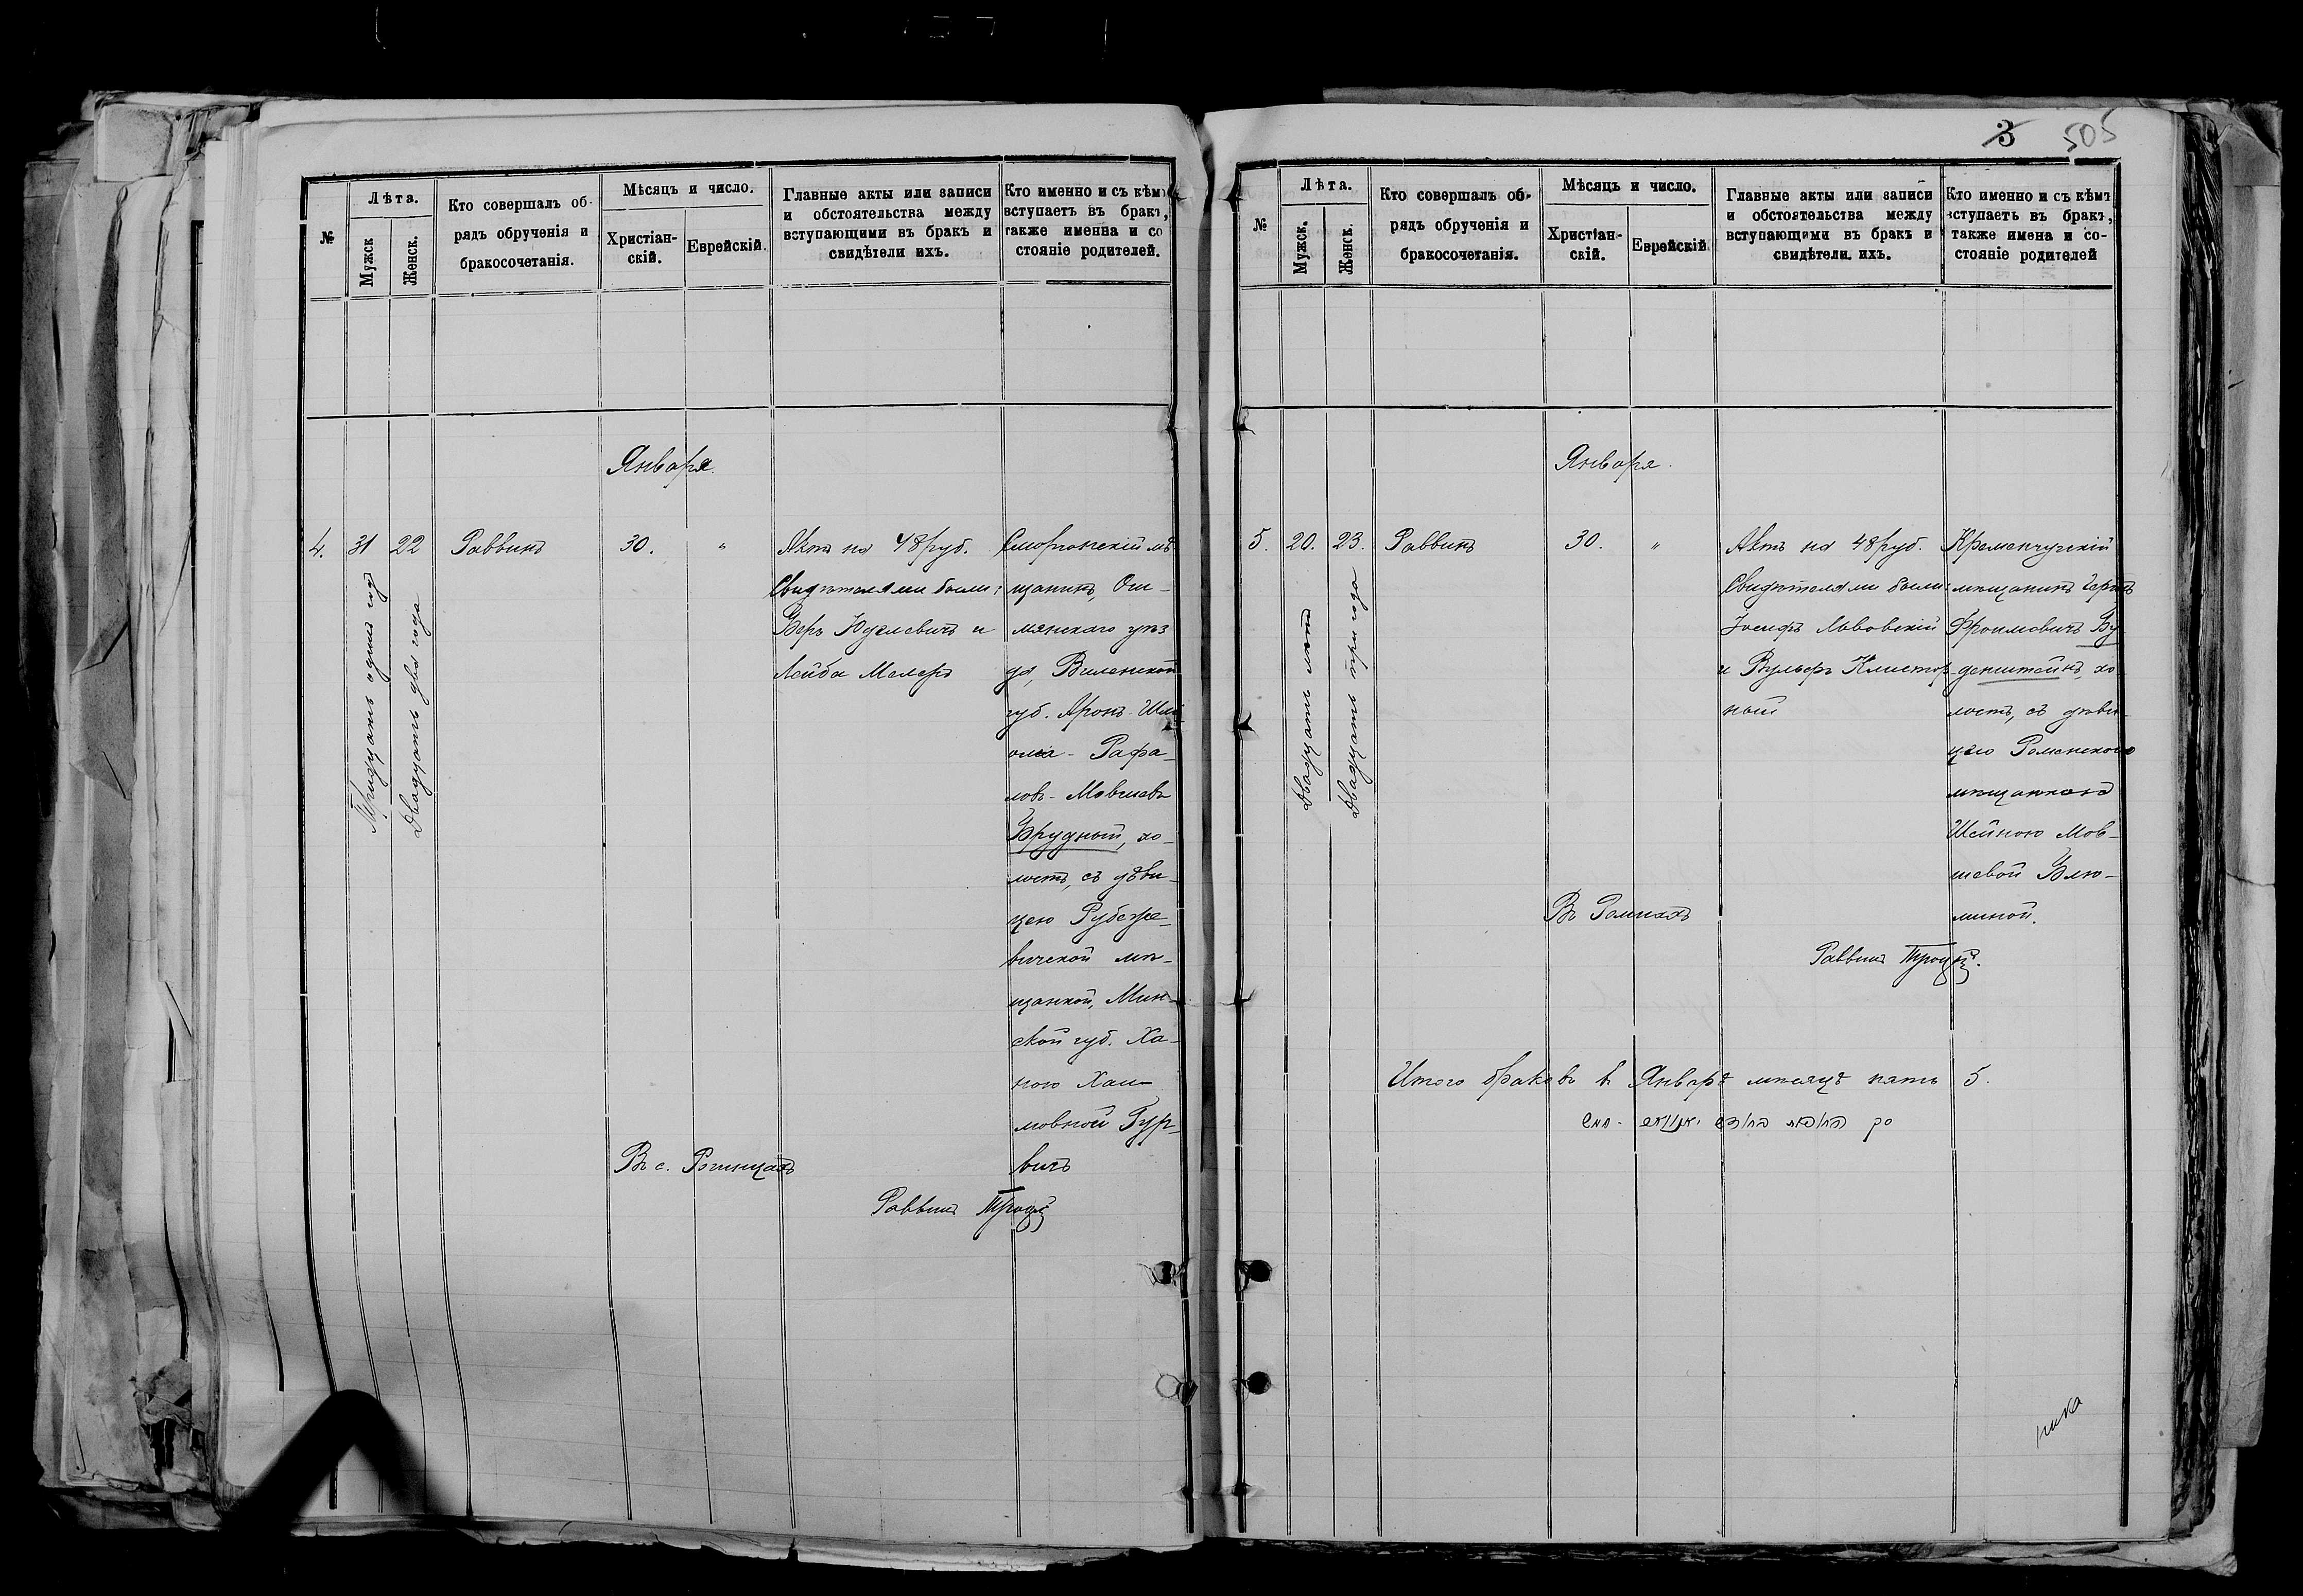 №
Лѣта.
Мужск
Женск.
Кто совершалъ об-
рядъ обрученія и
бракосочетанія.
Мѣсяцъ и число.
Христіан-
скій.
Еврейскій.
Главные акты или записи
и обстоятельства между
вступающими въ бракъ и
свидѣтели ихъ.
Кто именно и съ кѣмъ
вступаетъ въ бракъ,
также именна и со
стояніе родителей.
Января.
4.
31
22
Тридцать одинъ годъ
Двадцать два года
Раввинъ
30.
"
Актъ на 48 руб.
Свидѣтелями были:
Беръ Юделевичъ и
Лейба Мелеръ
Сморгонскій мѣ
щанинъ, Ош-
мянскаго уѣз
да, Виленской
губ. Аронъ-Шлі
ома-Рафа-
ловъ-Мовшевъ
Брудный, хо-
лостъ, съ дѣви-
цею Рубеже-
вичской мѣ-
щанкой, Мин-
ской губ. Ха-
ною Хаи-
мовной Гур-
вичъ
Въ с.
Раввинъ
3
505
№
Лѣта.
Мужск.
Женск.
Кто совершалъ об-
рядъ обрученія и
бракосочетанія.
Мѣсяцъ и число.
Христіан-
скій.
Еврейскій
Главные акты или записи
и обстоятельства между
вступающими въ бракъ и
свидѣтели ихъ.
Кто именно и съ кѣмъ
вступаетъ въ бракъ,
также имена и со-
стояніе родителей
Января.
5.
20.
23.
Двадцать лѣтъ
Двадцать три года
Раввинъ
30.
"
Актъ на 48 руб.
Свидѣтелями были:
Іосифъ Львовскій
и Вульфъ Клистор-
ный
Кременчугскій
мѣщанинъ Герцъ
Фроимовичъ Бу
денштейнъ, хо
лостъ, съ дѣви-
цею Роменскою
мѣщанкою
Шейною Мов-
шевой Блю-
миной.
Въ Ромнахъ
Раввинъ
Итого браковъ въ Январѣ мѣсяцѣ пять 5.
סך החופות בחודש יאנוואר